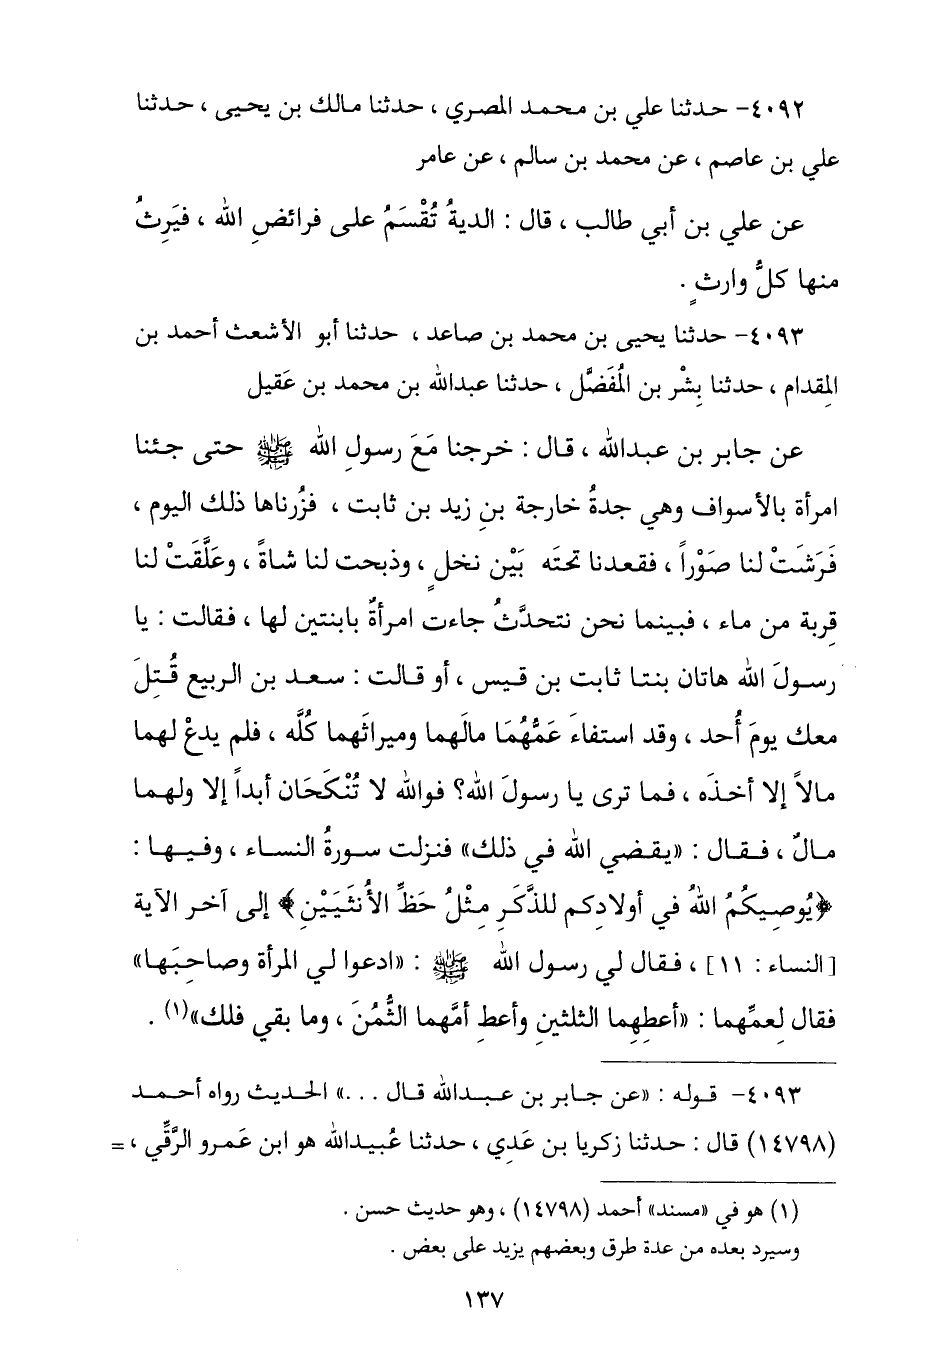 ٤٠٩٢- حدثنا علي بن محمد المصري ، حدثنا مالك بن يحيى ، حدثنا
علي بن عاصم ، عن محمد بن سالم ، عن عامر
عن علي بن أبي طالب ، قال : الديةُ تُقْسَمُ على فرائضِ الله ، فيَرِثُ
منها كلُّ وارثٍ .
٤٠٩٣- حدثنا يحيى بن محمد بن صاعد ، حدثنا أبو الأشعث أحمد بن
المِقدام ، حدثنا بِشْر بن المُفَضَّل ، حدثنا عبدالله بن محمد بن عَقيل
عن جابر بن عبدالله ، قال : خرجنا مَعَ رسولِ الله ﷺ حتى جئنا
امرأة بالأسواف وهي جدةُ خارجة بنِ زيد بن ثابت ، فزُرناها ذلك اليوم ،
فَرَشَتْ لنا صَوْراً ، فقعدنا تحتَه بَيْن نخلٍ ، وذبحت لنا شاةً ، وعلَّقَتْ لنا
قِربة من ماء ، فبينما نحن نتحدَّثُ جاءت امرأةٌ بابنتين لها ، فقالت : يا
رسولَ الله هاتان بنتا ثابت بن قيس ، أو قالت : سعد بن الربيع قُتِلَ
معك يومَ أُحد ، وقد استفاءَ عَمُّهُمَا مالَهما وميراثَهما كُلَّه ، فلم يدعْ لهما
مالاً إلا أخذَه ، فما ترى يا رسولَ الله؟ فوالله لا تُنْكَحَان أبداً إلا ولهما
مالٌ ، فقال : «يقضي الله في ذلك» فنزلت سورةُ النساء ، وفيها :
﴿يُوصِيكُمُ اللهُ في أولادِكم للذَّكَرِ مِثْلُ حَظِّ الأُنثَيَيْنِ﴾ إلى آخر الآية
[النساء : ١١] ، فقال لي رسول الله ﷺ : «ادعوا لي المرأة وصاحِبَها»
فقال لِعمِّهما : «أعطِهما الثلثينِ وأعطِ أمَّهما الثُّمُنَ ، وما بقي فلك»(١) .
٤٠٩٣- قوله : «عن جابر بن عبدالله قال ...» الحديث رواه أحمد
(١٤٧٩٨) قال : حدثنا زكريا بن عَدِي ، حدثنا عُبيدالله هو ابن عَمرو الرَّقِّي ، =
(١) هو في «مسند» أحمد (١٤٧٩٨) ، وهو حديث حسن .
وسيرد بعده من عدة طرق وبعضهم يزيد على بعض .
١٣٧